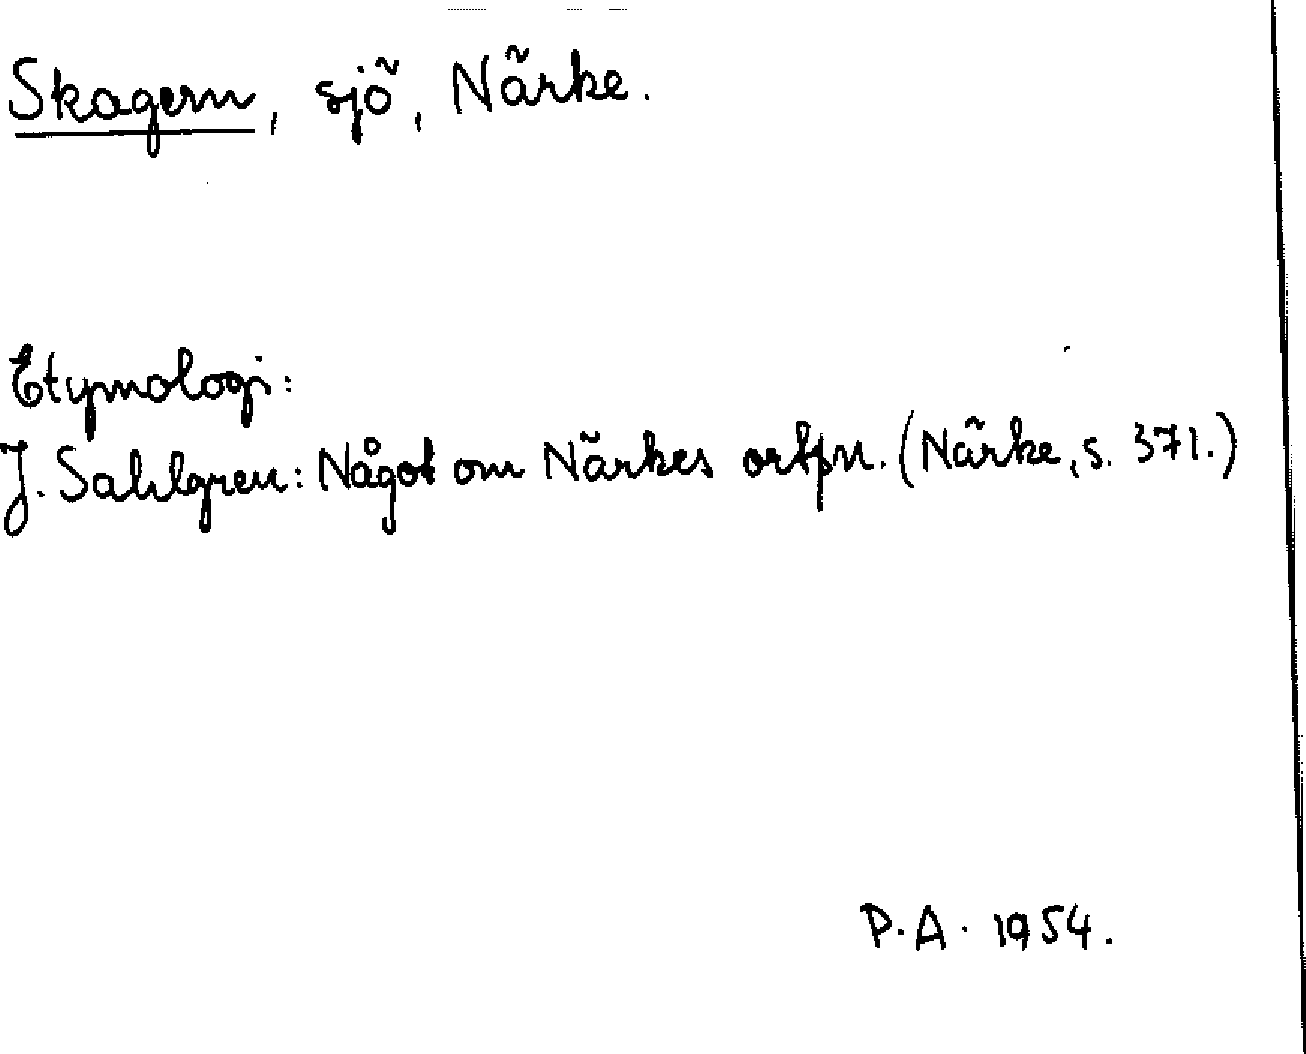 Skagern, sjö, Närke.
Etymologi:
J. Sahlgren: Något om Närkes ortpn. (Närke, s. 371.)
P.A. 1954.